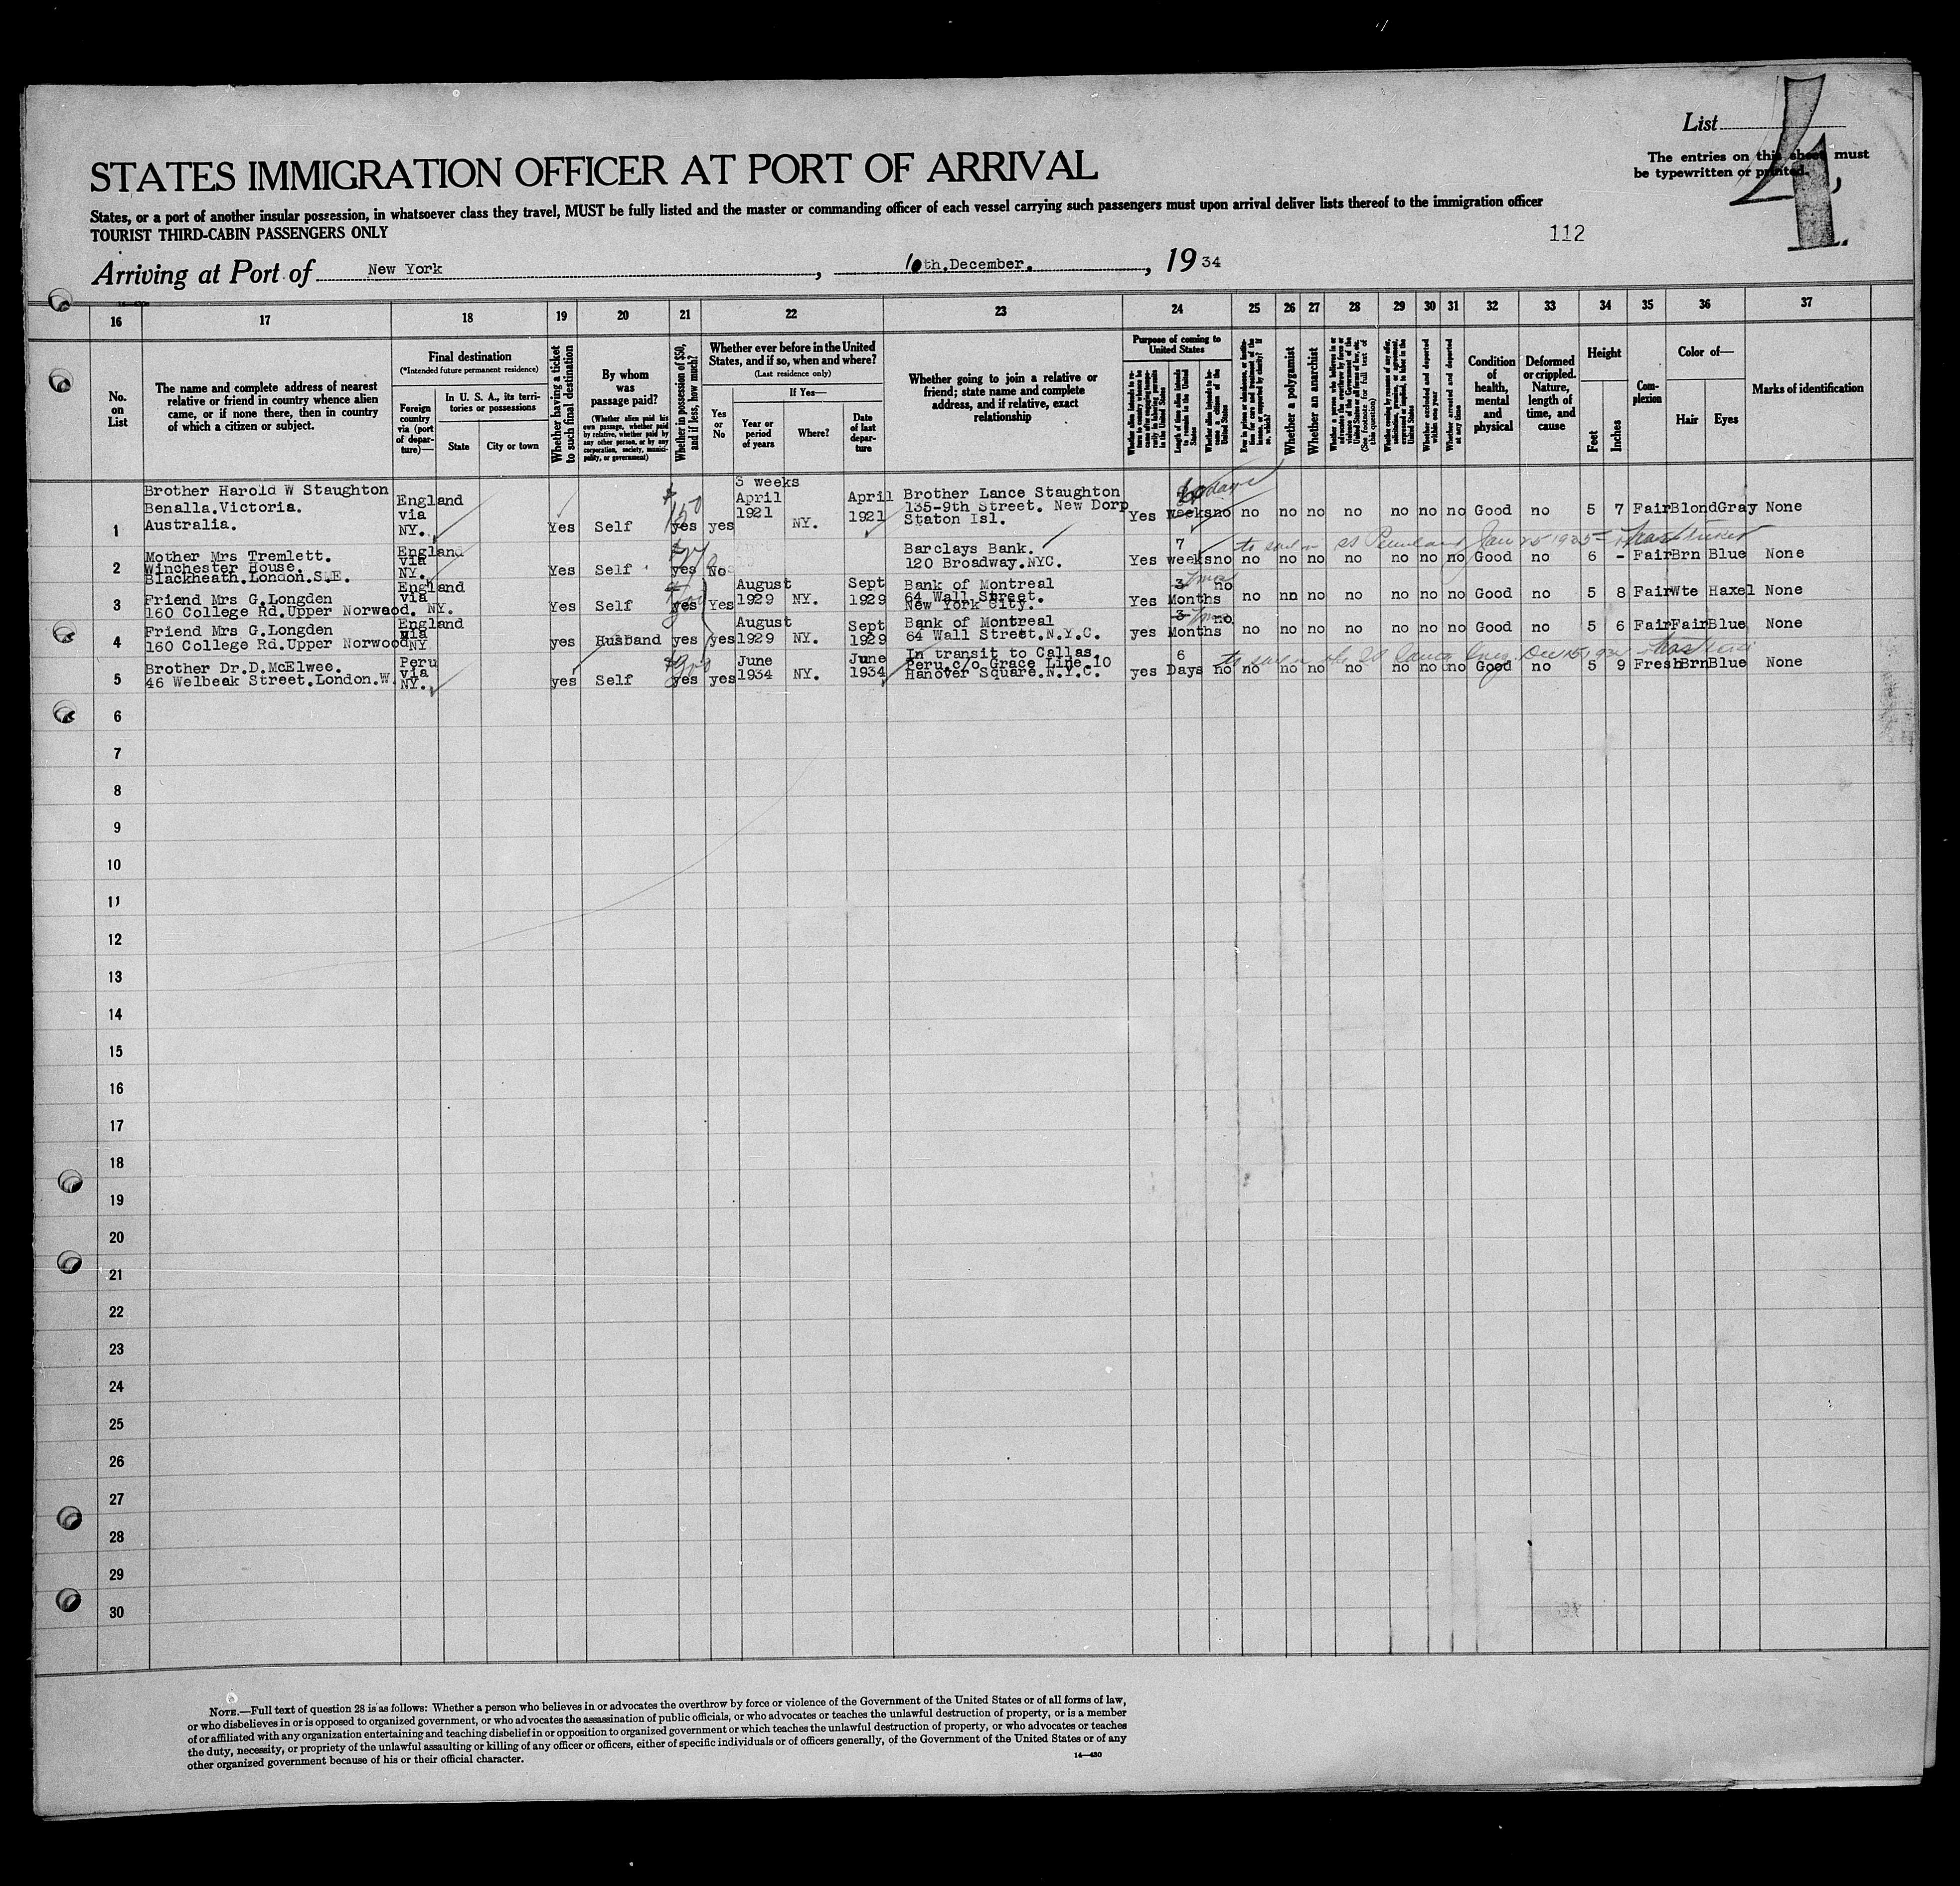 List
4
The entries on this sheet must
be typewritten or printed.
STATES IMMIGRATION OFFICER AT PORT OF ARRIVAL
States, or a port of another insular possession, in whatsoever class they travel, MUST be fully listed and the master or commanding officer of each vessel carrying such passengers must upon arrival deliver lists thereof to the immigration officer
TOURIST THIRD-CABIN PASSENGERS ONLY
112
Arriving at Port of New York, 10th.December., 19 34
16 17 18 19 20 21 22 23 24 25 26 27 28 29 30 31 32 33 34 35 36 37
No.
on
List
The name and complete address of nearest
relative or friend in country whence alien
came, or if none there, then in country
of which a citizen or subject.
Final destination
(*Intended future permanent residence)
Foreign
country
via (port
of depar-
ture)—
In U. S. A., its terri-
tories or possessions
State
City or town
Whether having a ticket
to such final destination
By whom
was
passage paid?
(Whether alien paid his
own passage, whether paid
by relative, whether paid by
any other person, or by any
corporation, society, munici-
pality, or government)
Whether in possession of $50,
and if less, how much?
Whether ever before in the United
States, and if so, when and where?
(Last residence only)
Yes
or
No
If Yes—
Year or
period
of years
Where?
Date
of last
depar-
ture
Whether going to join a relative or
friend; state name and complete
address, and if relative, exact
relationship
Purpose of coming to
United States
Whether a polygamist
Whether an anarchist
(See footnote for full text of
this question)
Whether excluded and deported
within one year
Whether arrested and deported
at any time
Condition
of
health,
mental
and
physical
Deformed
or crippled.
Nature,
length of
time, and
cause
Height
Feet
Inches
Com-
plexion
Color of—
Hair
Eyes
Marks of identification
1
Brother Harold W Staughton
Benalla.Victoria.
Australia.
England
via
NY.
Yes Self $150 yes yes
3 weeks
April
1921
NY.
April
1921
Brother Lance Staughton
135-9th Street. New Dorp
Staton Isl.
60 days
Yes weeks no no no no no no no no Good no 5 7 Fair Blond Gray None
2
Mother Mrs Tremlett.
Winchester House.
Blackheath.London.S.E.
England
via
NY.
Yes Self yes No
Barclays Bank.
120 Broadway.NYC.
7
Yes weeks no no no no no no no no Good no 6 - Fair Brn Blue None
to sail on SS Pennland Jan 25 1935
3
Friend Mrs G.Longden
160 College Rd.Upper Norwood.
England
via
NY.
Yes Self yes Yes
August
1929
NY.
Sept
1929
Bank of Montreal
64 Wall Street.
New York City.
3
Yes Months no no nn no no no no no Good no 5 8 Fair Wte Haxel None
4
Friend Mrs G.Longden
160 College Rd.Upper Norwood
England
via
NY
yes Husband yes yes
August
1929
NY.
Sept
1929
Bank of Montreal
64 Wall Street.N.Y.C.
3
yes Months no no no no no no no no Good no 5 6 Fair Fair Blue None
5
Brother Dr.D.McElwee.
46 Welbeak Street.London.W.
Peru
via
NY.
yes Self yes yes
June
1934
NY.
June
1934
In transit to Callas.
Peru.c/o Grace Line.10
Hanover Square.N.Y.C.
6
yes Days no no no no no no no no Good no 5 9 Fresh Brn Blue None
6
7
8
9
10
11
12
13
14
15
16
17
18
19
20
21
22
23
24
25
26
27
28
29
30
NOTE.—Full text of question 28 is as follows: Whether a person who believes in or advocates the overthrow by force or violence of the Government of the United States or of all forms of law,
or who disbelieves in or is opposed to organized government, or who advocates the assassination of public officials, or who advocates or teaches the unlawful destruction of property, or is a member
of or affiliated with any organization entertaining and teaching disbelief in or opposition to organized government or which teaches the unlawful destruction of property, or who advocates or teaches
the duty, necessity, or propriety of the unlawful assaulting or killing of any officer or officers, either of specific individuals or of officers generally, of the Government of the United States or of any
other organized government because of his or their official character.
14—430